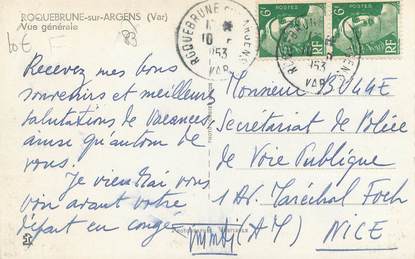 ROQUEBRUNE-sur-ARGENS (Var)
Vue générale
83
Recevez mes bons
souvenirs et meilleures
salutations de Vacances,
ainsi qu'autour de
vous.
Je viendrai vous
voir avant votre
départ en congé
Monsieur
Secrétariat de Police
de Voie Publique
1 Av. Maréchal Foch
(AM) NICE
ROQUEBRUNE S. ARGENS
10
1953
VAR
ROQUEBRUNE S. ARGENS
1953
VAR
6F
RF
6F
RF